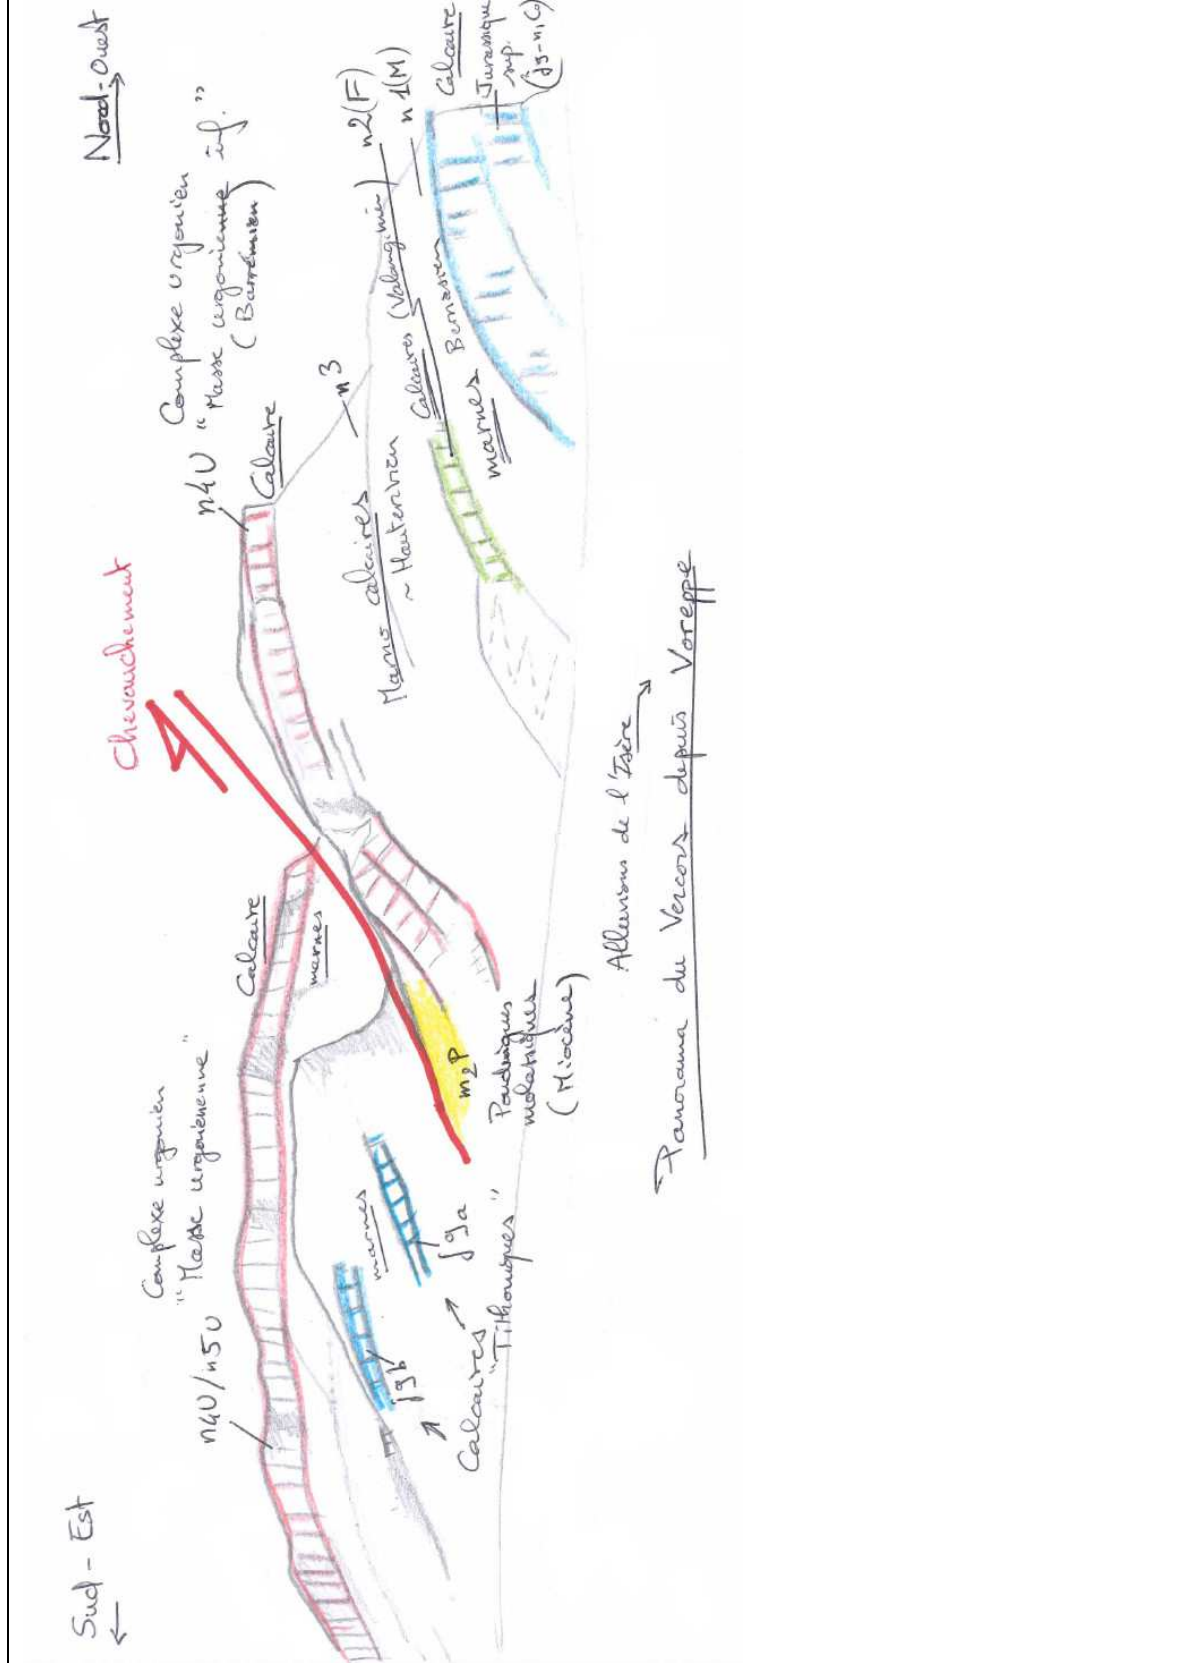 Sud-Est
←
Nord-Ouest
→
n4U/n5U
Complexe urgonien
"Masse urgonienne"
Calcaire
marnes
Chevauchement
n4U
Complexe urgonien
"Masse urgonienne inf."
(Barrémien)
Calcaire
n3
Marno calcaires
~ Hauterivien
Calcaires (Valanginien)
n2(F)
n1(M)
marnes
Berriasien
Calcaire
Jurassique
sup.
j9b
marnes
j9a
Calcaires
"Tithoniques"
m2P
Poudingues
molassiques
(Miocène)
Alluvions de l'Isère →
Panorama du Vercors depuis Voreppe